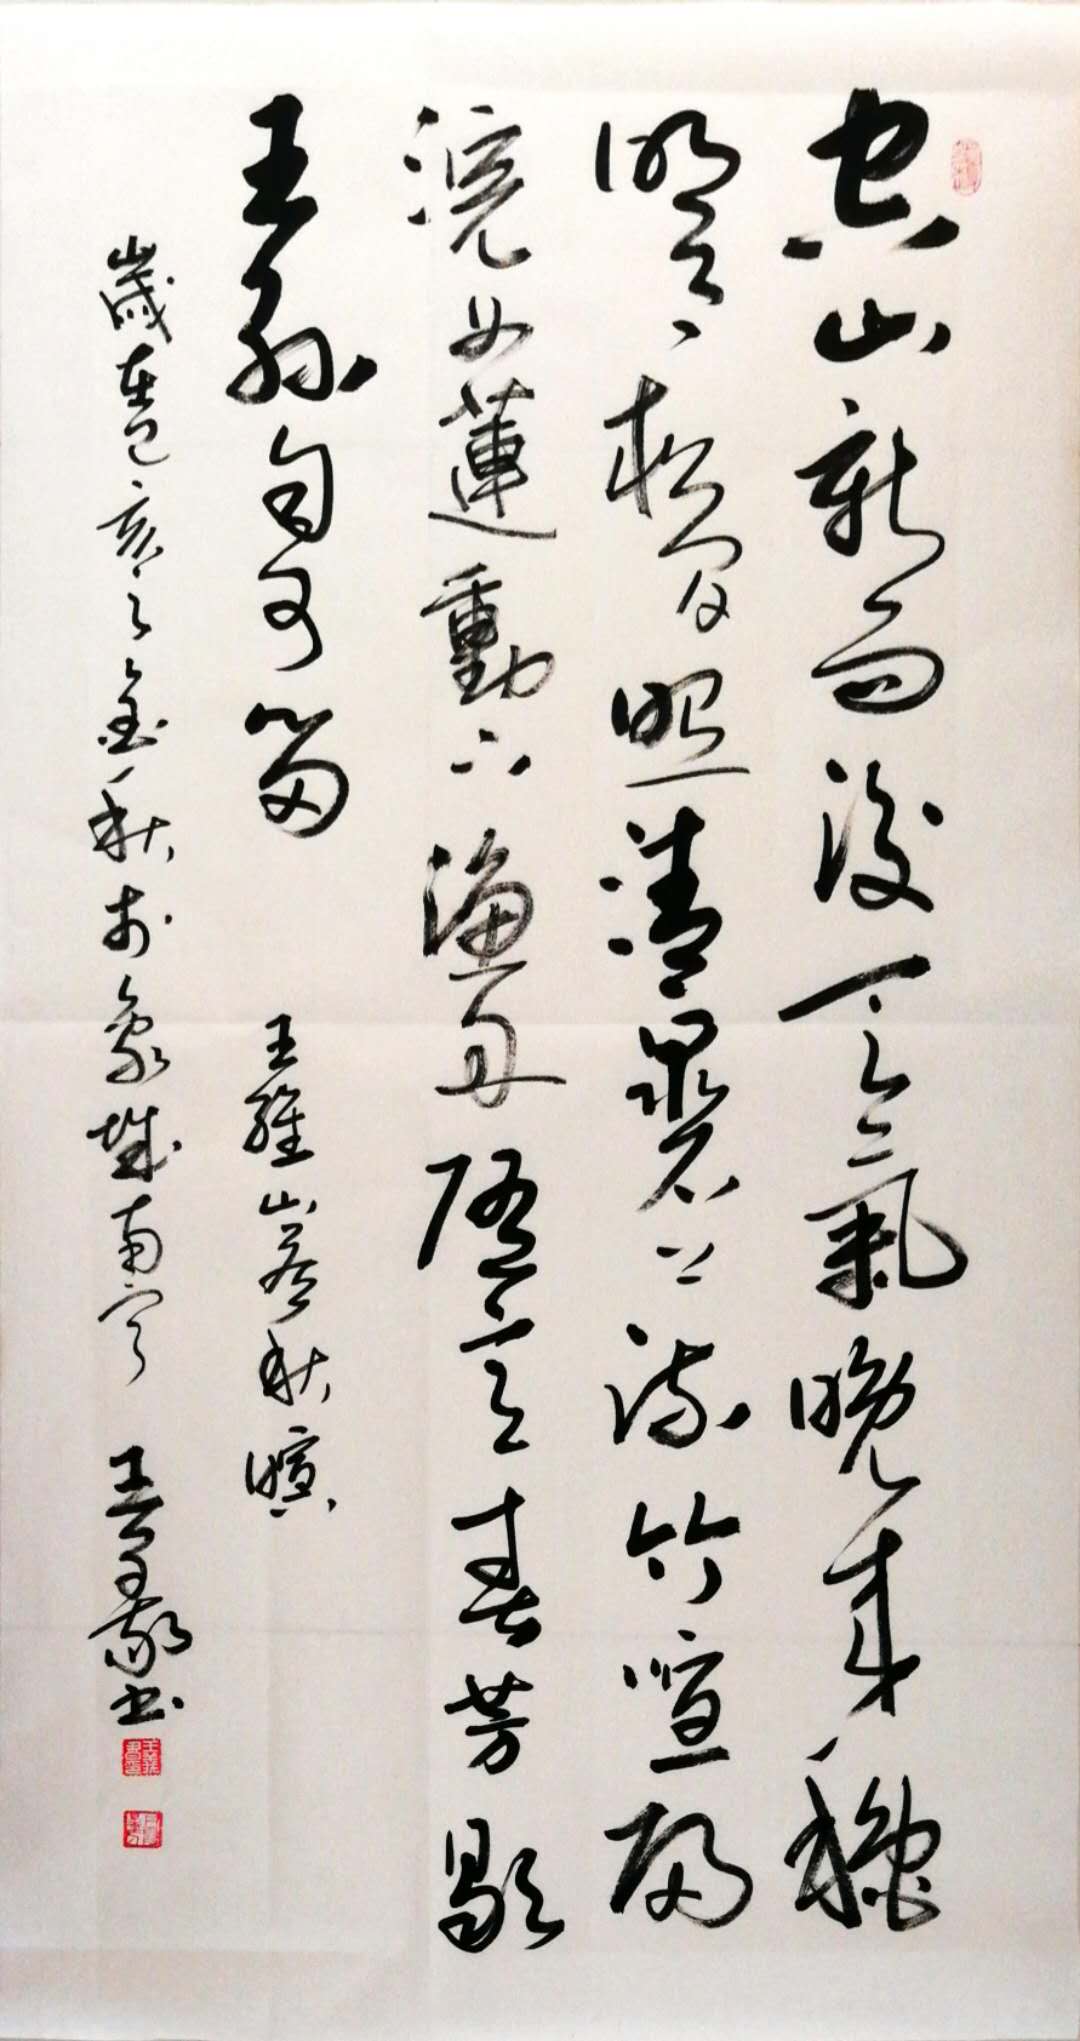 空山新雨後天氣晚来穐
明月松間照清泉石上流竹喧歸
浣女蓮動下漁舟随意春芳歇
王孫自可留 王維山居秋暝
歲在己亥之金秋於象城南宁 王书